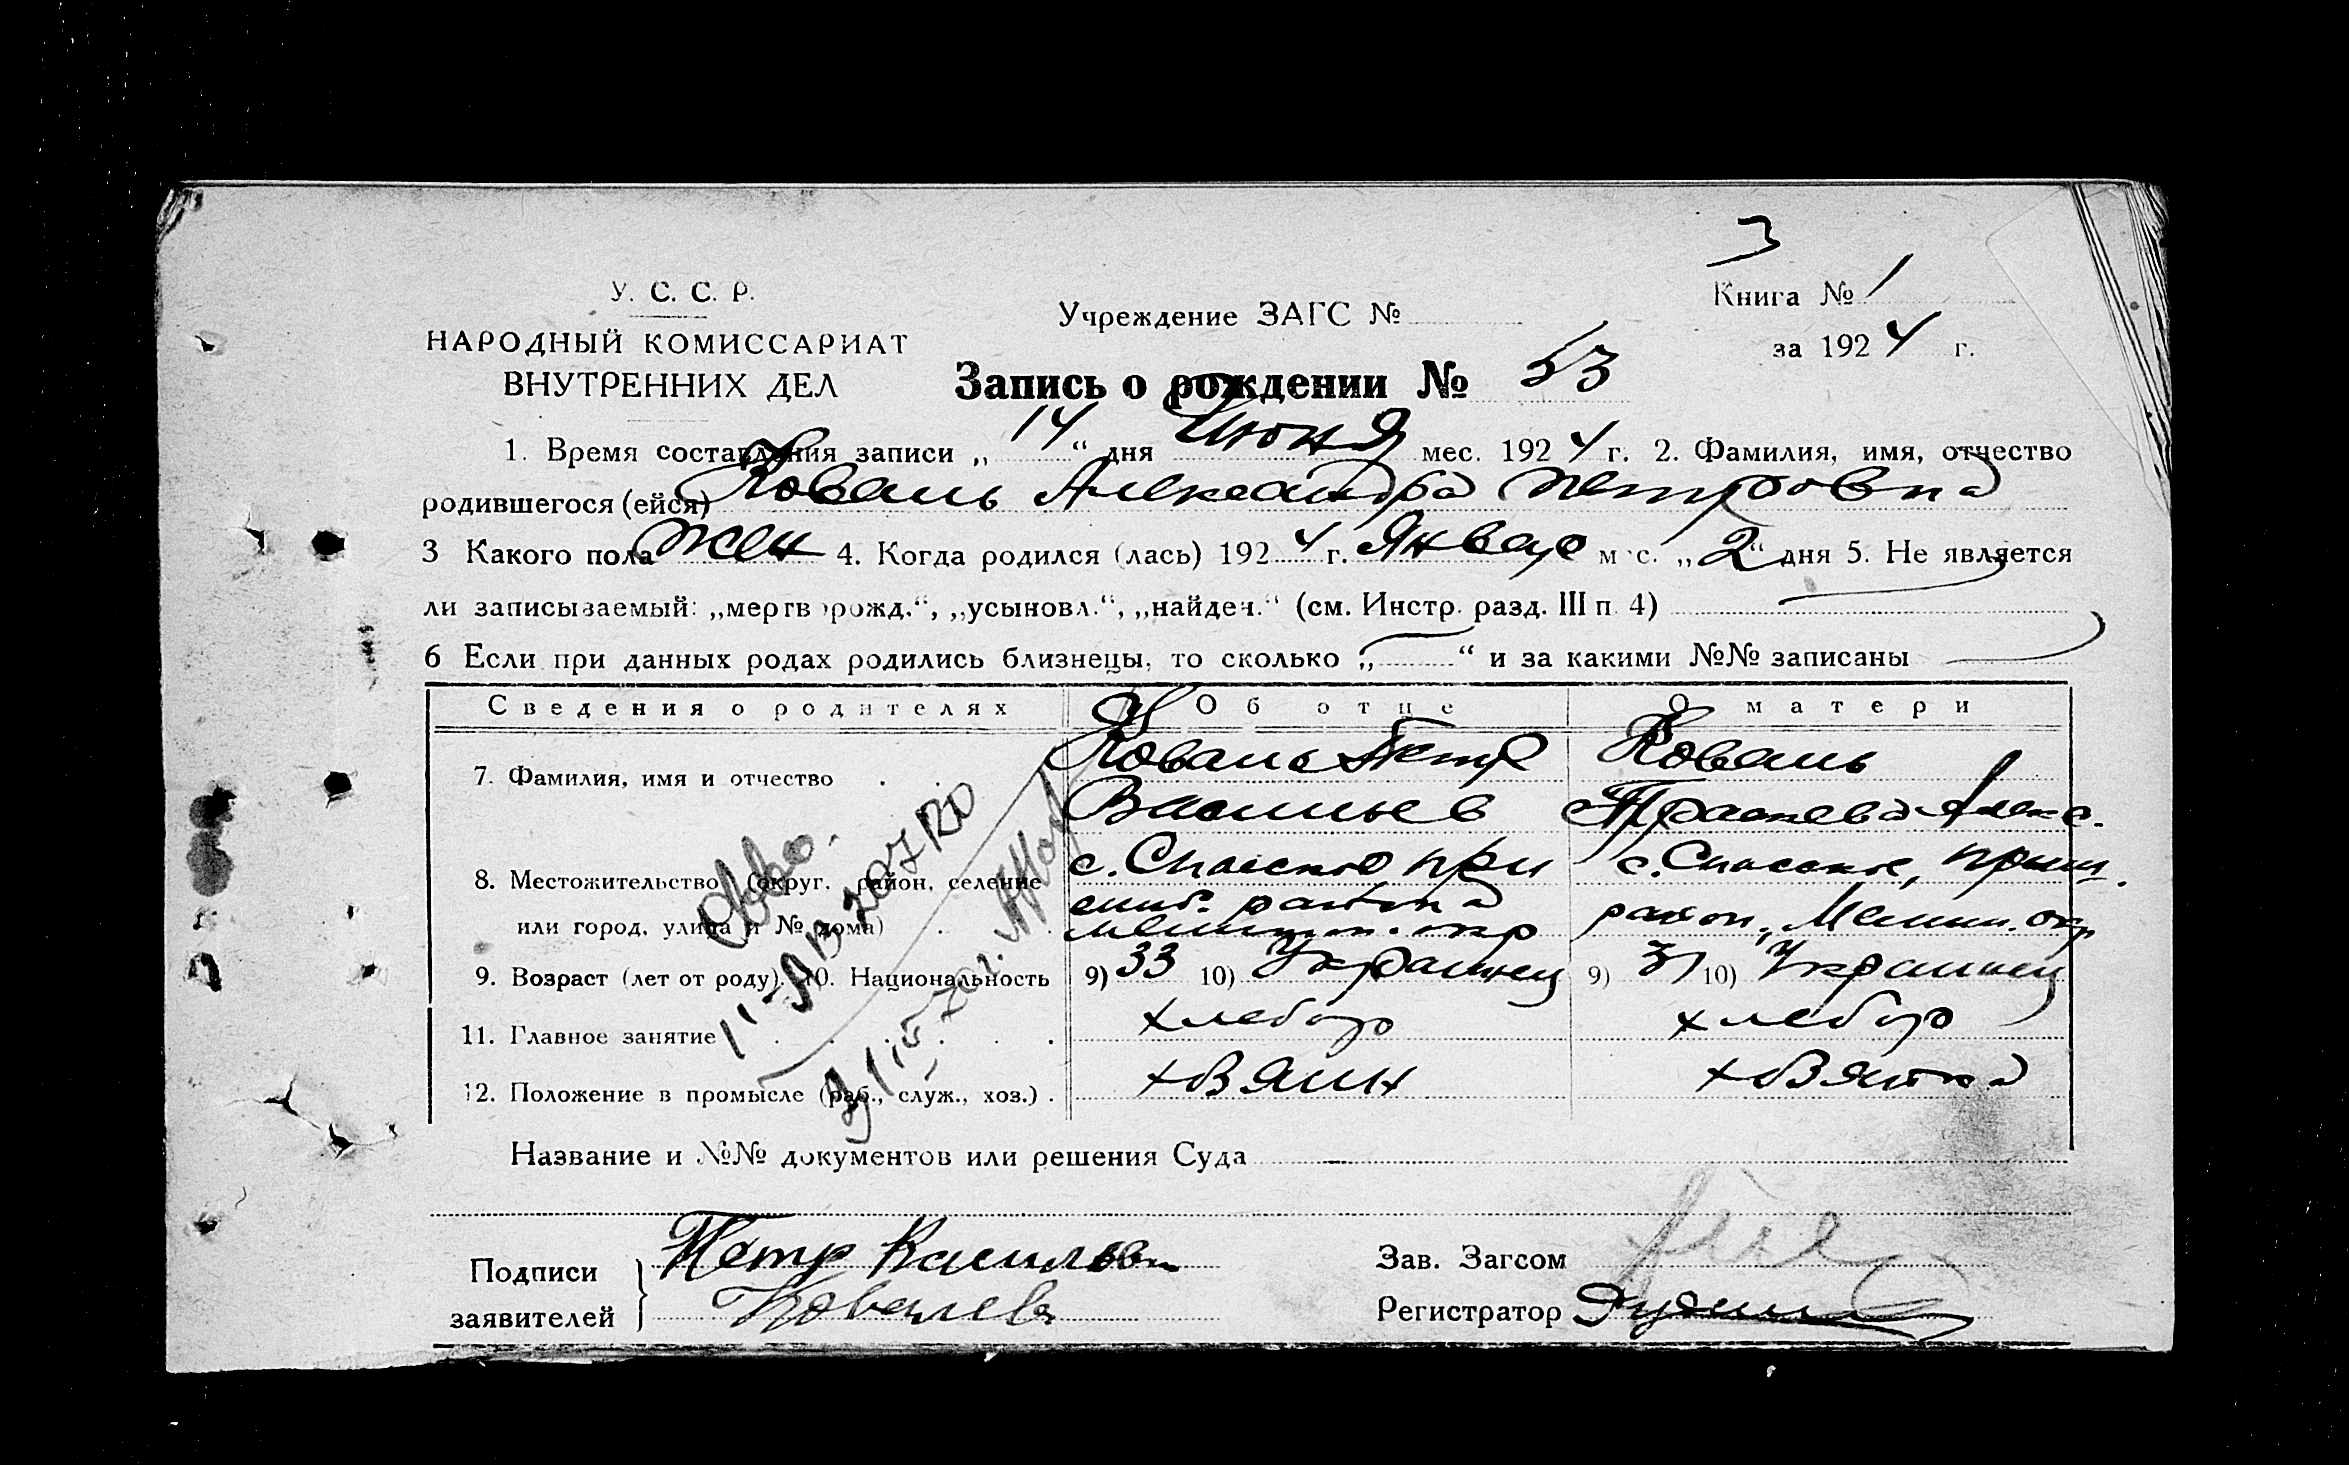 3
У. С. С. Р.
НАРОДНЫЙ КОМИССАРИАТ
ВНУТРЕННИХ ДЕЛ
Учреждение ЗАГС №
Книга № 1
за 1924 г.
Запись о рождении № 53
1. Время составления записи „14“ дня Июня мес. 1924 г. 2. Фамилия, имя, отчество
родившегося (ейся) Коваль Александра Петровна
3 Какого пола жен 4. Когда родился (лась) 1924 г. Январе мес. „2“ дня 5. Не является
ли записываемый: „мертворожд.“, „усыновл.“, „найден.“ (см. Инстр. разд. III п. 4)
6 Если при данных родах родились близнецы, то сколько „ “ и за какими №№ записаны
Сведения о родителях Об отце О матери
7. Фамилия, имя и отчество Коваль Петр Коваль
Васильев Прасковья Алекс.
8. Местожительство (округ, район, селение с. Спасское при с. Спасское, Приш.
или город, улица и № дома) района район, Мелит. окр
9. Возраст (лет от роду). 10. Национальность 9) 33 10) Украинец 9) 31 10) Украинец
11. Главное занятие хлебор хлебор
12. Положение в промысле (раб., служ., хоз.) хозяин хозяйка
Название и №№ документов или решения Суда —
Подписи заявителей Петр Васильев
Ковалев
Зав. Загсом
Регистратор